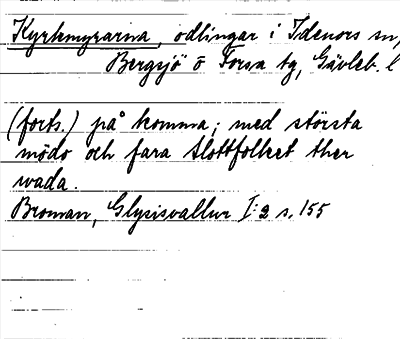 Kyrkmyrarna, odlingar i Idenors sn,
Bergsjö o Forsa tg, Gävleb. l
(forts.) på komma; med största
mödo och fara Slottfolket ther
wada.
Broman, Glysisvallur I:2 s. 155